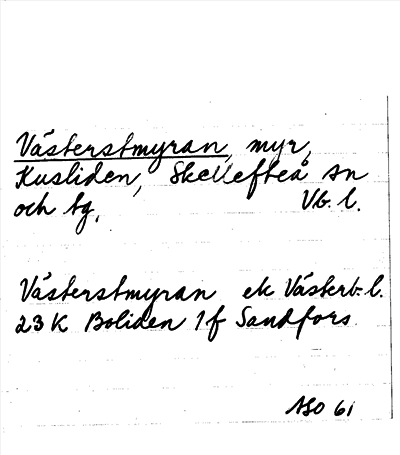 Västerstmyran, myr,
Kusliden, Skellefteå sn
och tg, Vb. l.
Västerstmyran ek Västerb. l.
23 K Boliden 1f Sandfors
ASO 61